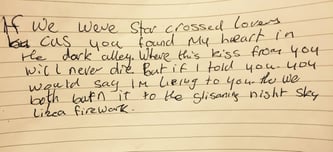 If we were star crossed lovers
cus you found my heart in
the dark alley. Where this kiss from you
will never die But if I told you you
would say Im lieing to you tho we
both burn it to the glisaning night sky
like a firework.